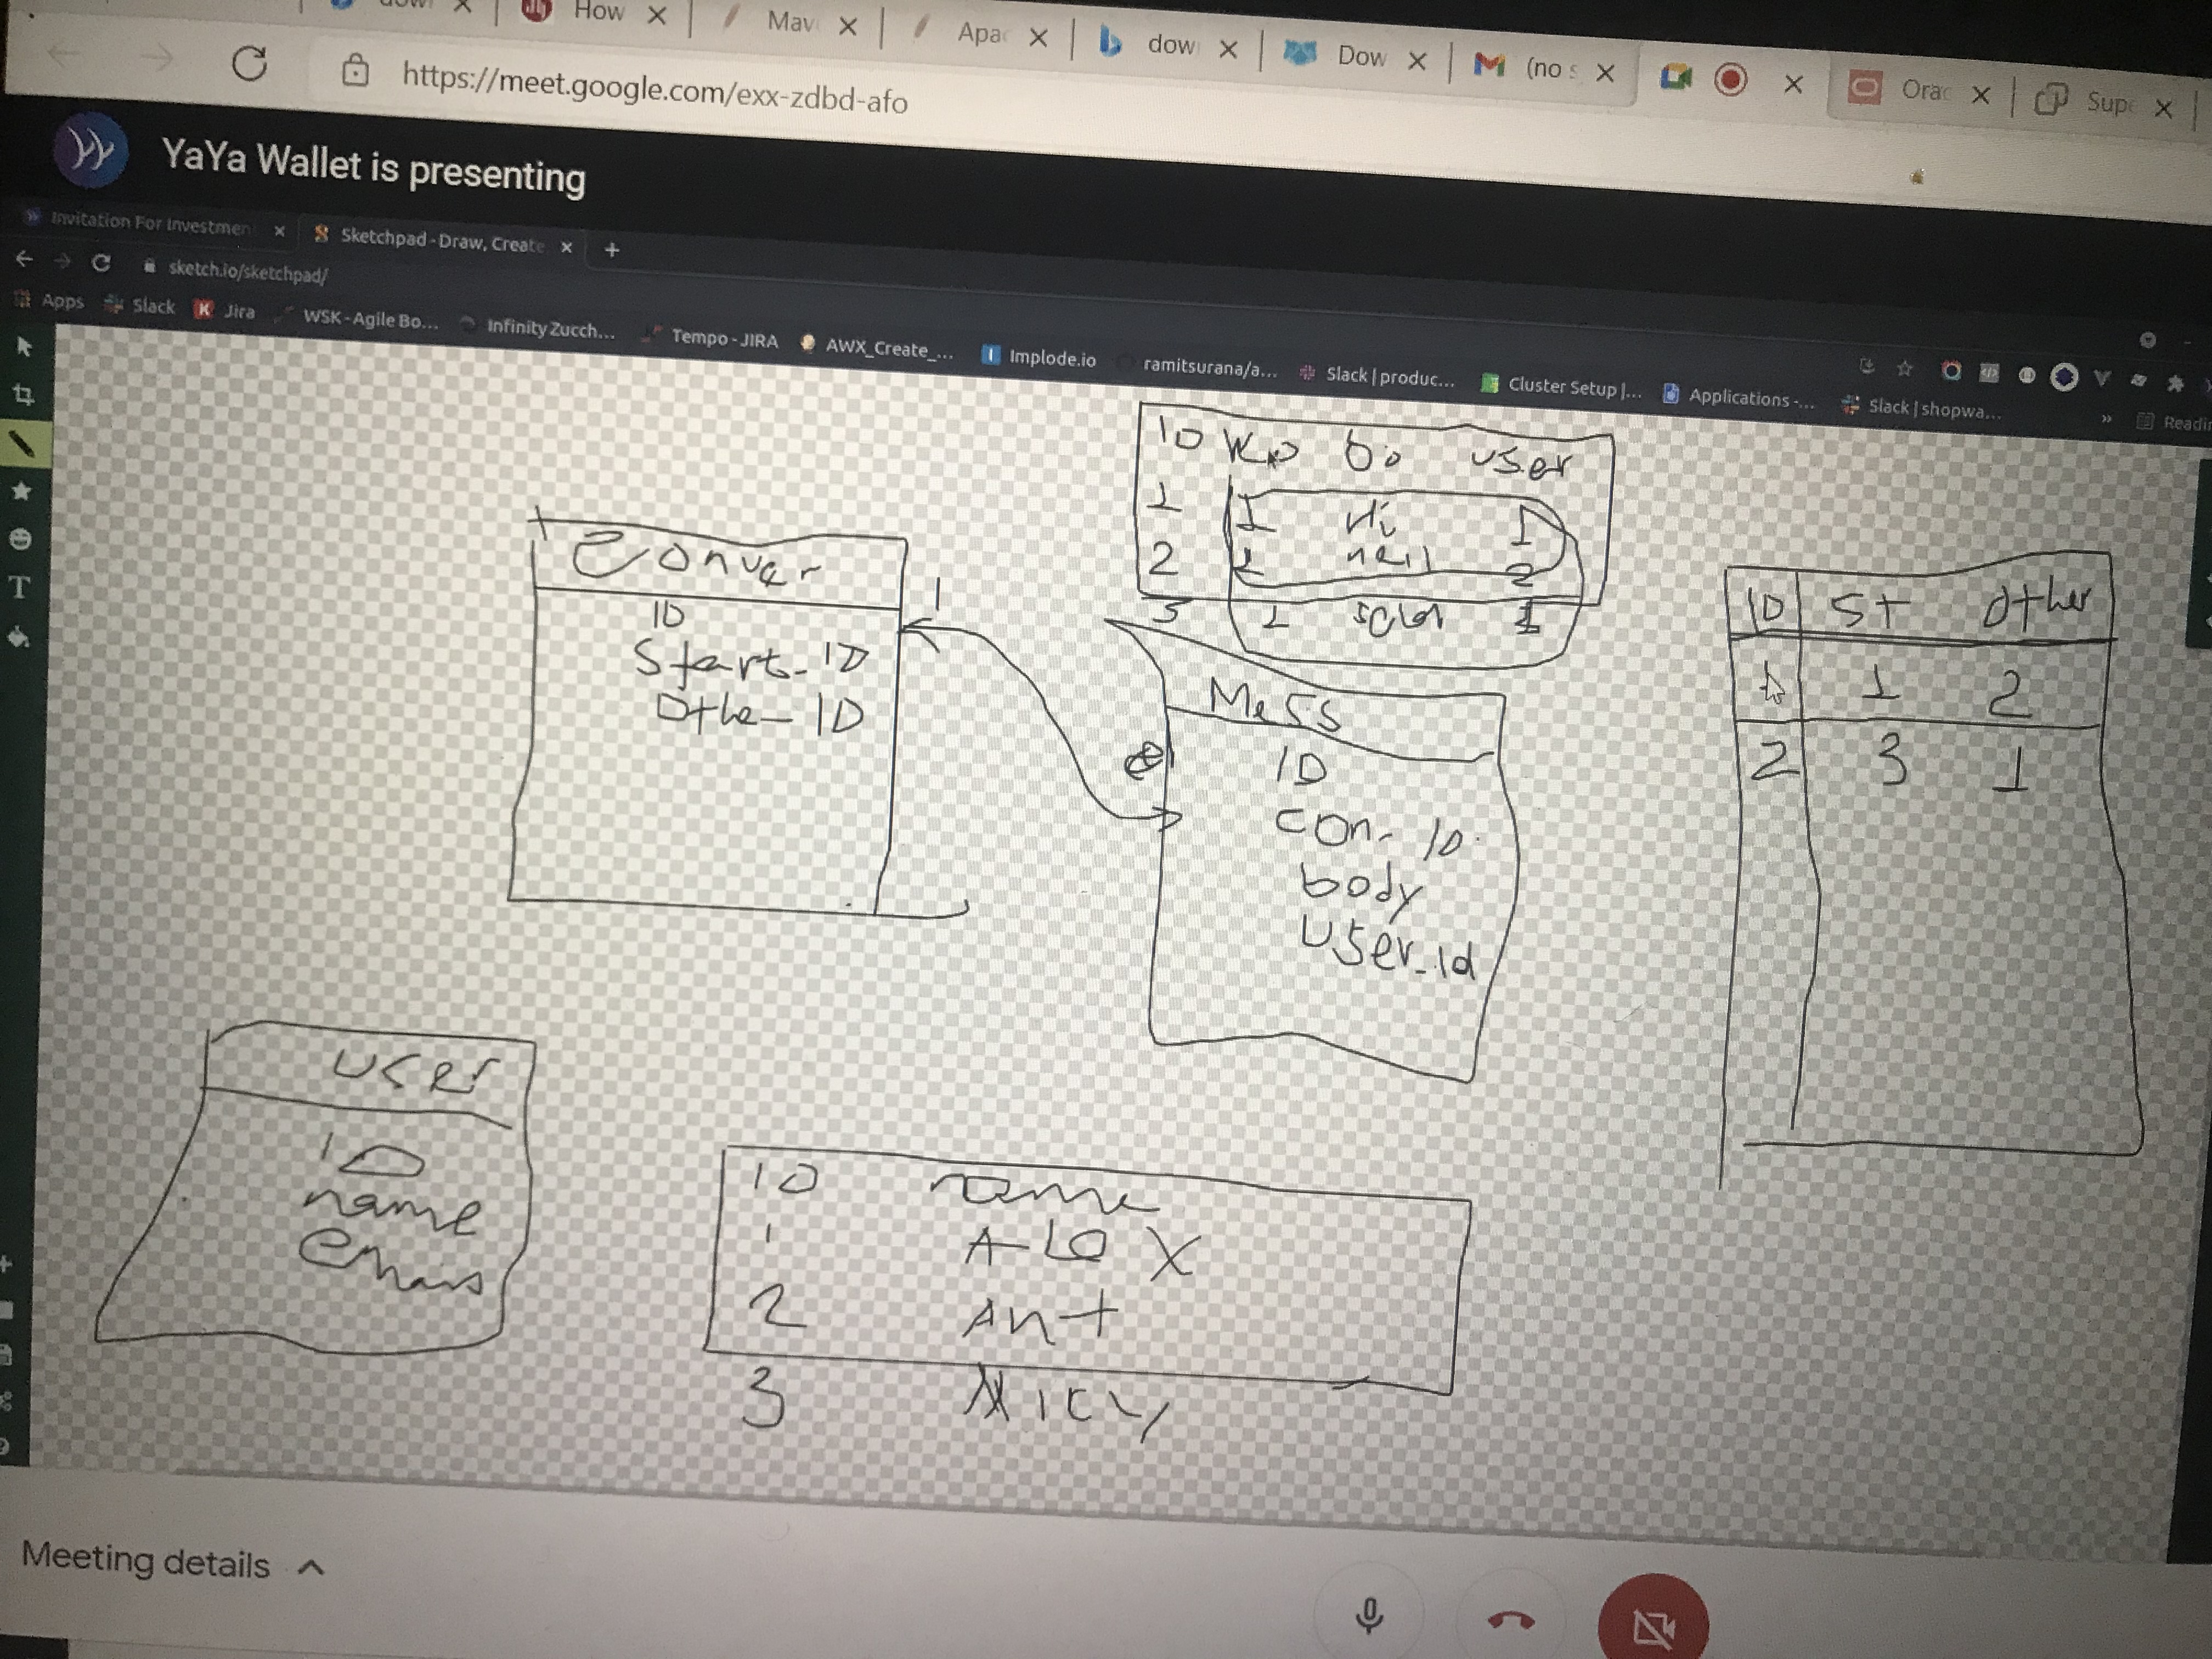 How
Mav
Apa
dow
Dow
(no s
Orac
Supe
https://meet.google.com/exx-zdbd-afo
YaYa Wallet is presenting
Invitation For Investmen
Sketchpad - Draw, Create
sketch.io/sketchpad/
Apps
Slack
Jira
WSK - Agile Bo...
Infinity Zucch...
Tempo - JIRA
AWX_Create_...
Implode.io
ramitsurana/a...
Slack | produc...
Cluster Setup |...
Applications -...
Slack | shopwa...
Readin
ID user
1 1 Hi 1
2 2
Conver
ID
Start_ID
Othe_ID
1
Mess
ID
Con_ID
body
User_id
ID St Other
1 2
2 3 1
User
ID
name
ID name
1 ALeX
2 Ant
3
Meeting details